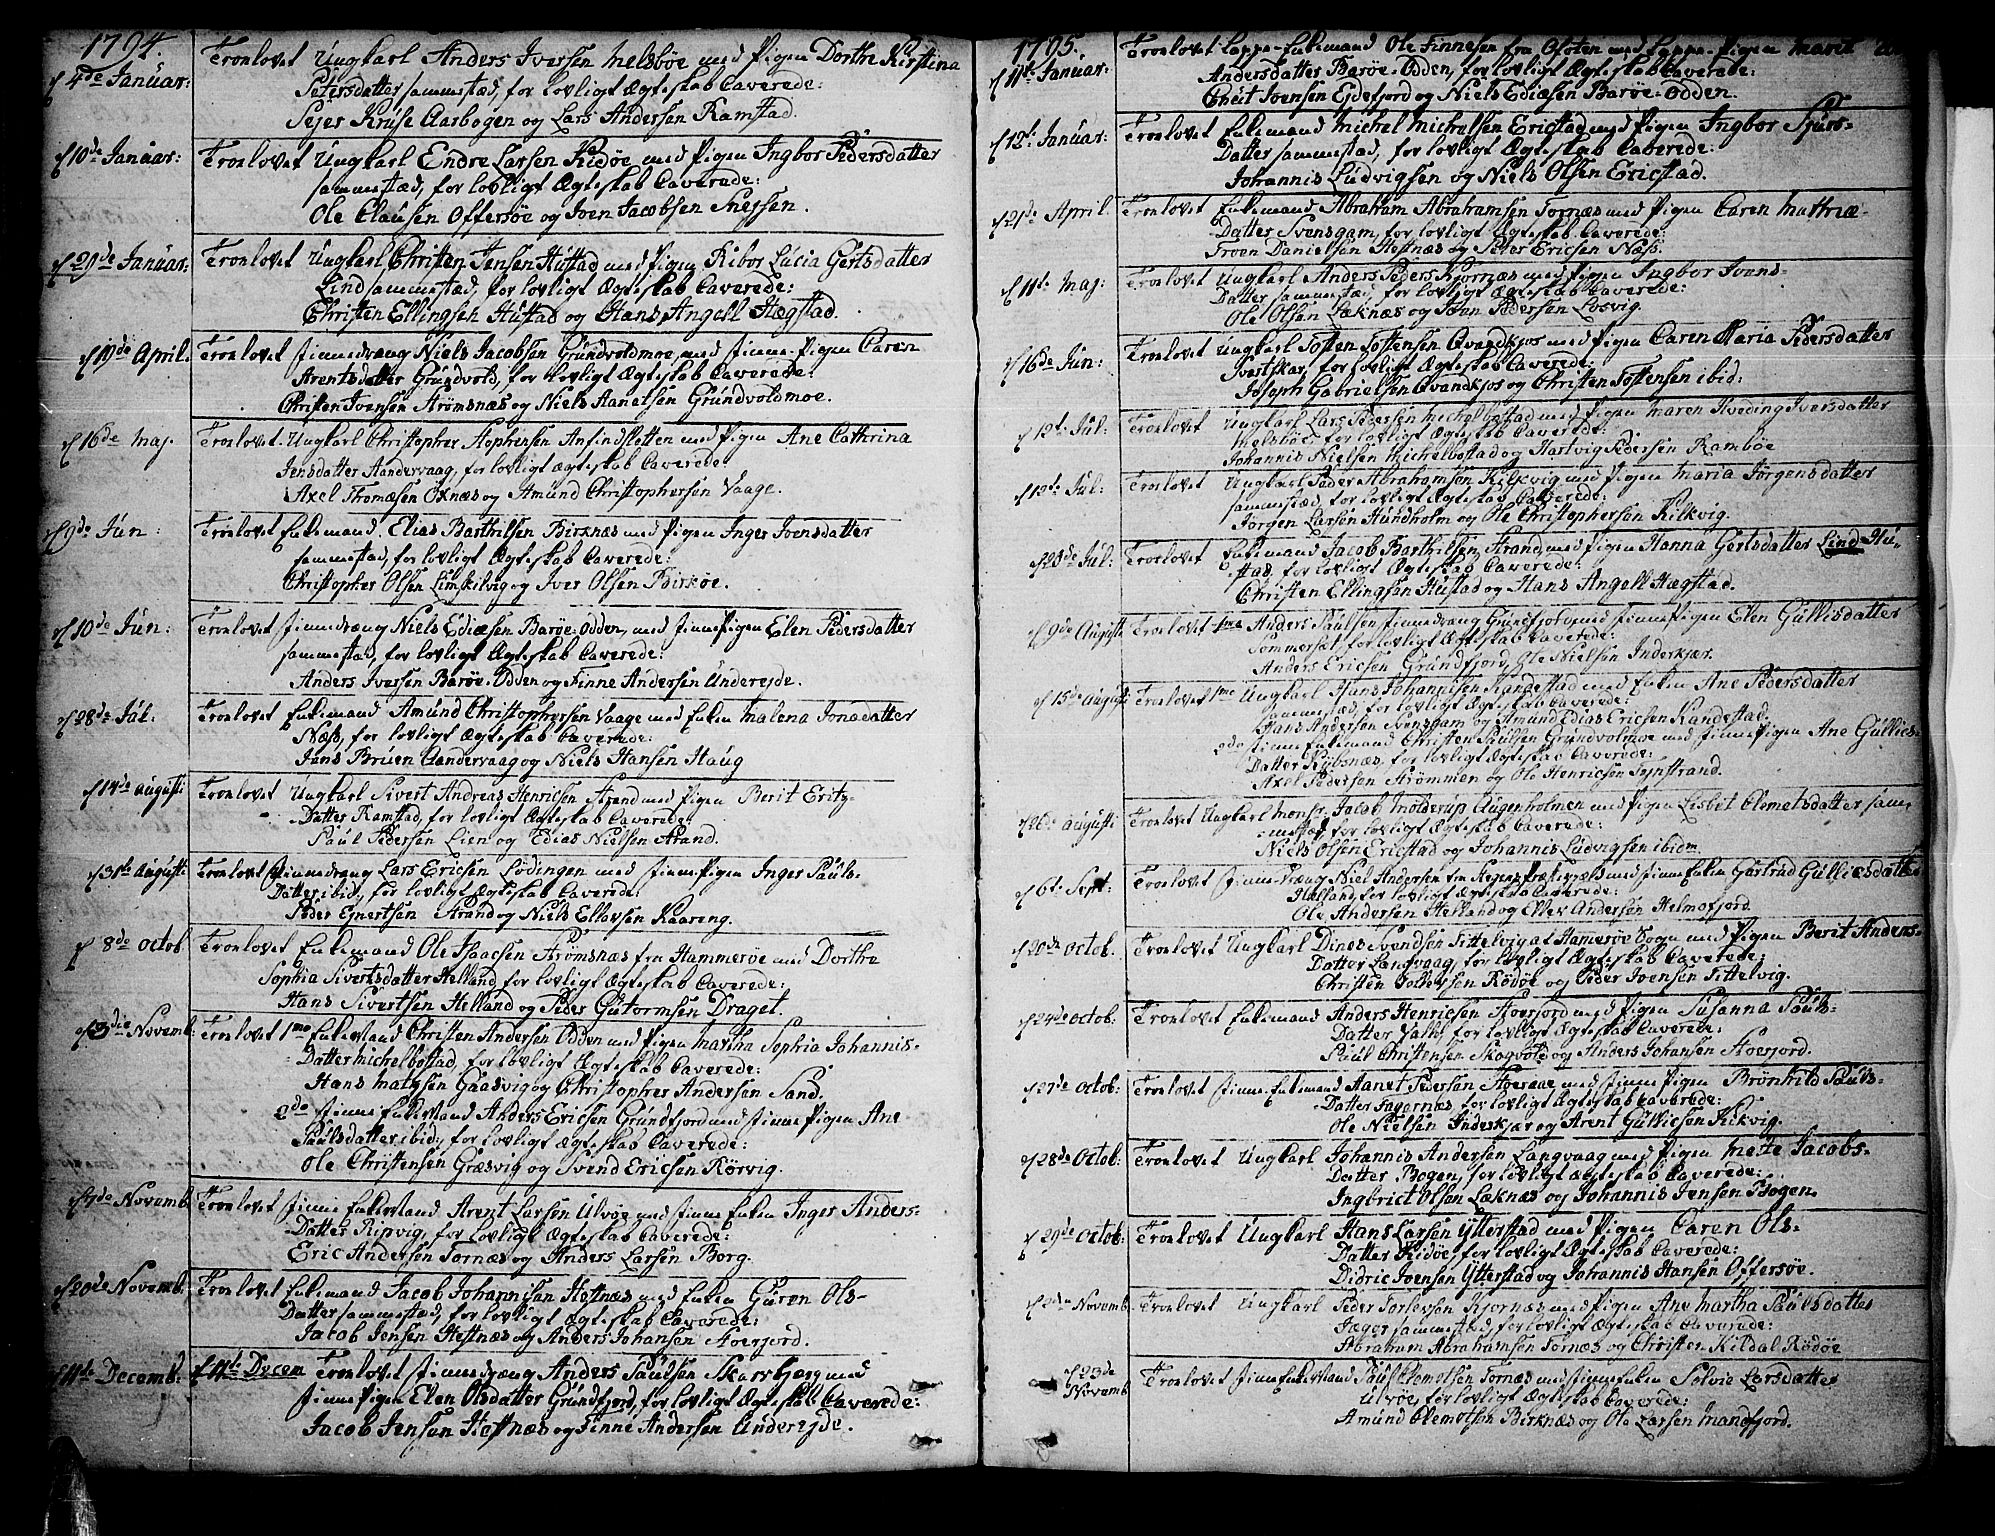 1794.
d 4de Januar: Trolovet Ungkarl Anders Iversen Melsböe med Pigen Dorthe Kirstina
Petersdatter sammestæd, for lovligt Ægteskab Caverede:
Pejer Kruse Aarbogen og Lars Andersen Ramstad.
d 10de Januar: Trolovet Ungkarl Endre Larsen Ridöe med Pigen Ingbor Pedersdatter
sammestæd, for lovligt Ægteskab Caverede:
Ole Clausen Offersöe og Iven Jacobsen Snessen.
d 29de Januar: Trolovet Ungkarl Christen Jensen Hustad med Pigen Ribor Lucia Gertsdatter
Lind sammestæd, for lovligt Ægteskab Caverede:
Christen Ellingsen Hustad og Hans Angell Hægstad.
d 19de April. Trolovet finnedræng Niels Jacobsen Grundvoldmoe, med finne-Pigen Caren
Arentsdatter Grundvold, for lovligt Ægteskab Caverede:
Christen Ivensen Strömsnæs og Niels Aanetsen Grundvoldmoe.
d 16de Maj. Trolovet Ungkarl Christopher Stephensen Ansindsletten med Pigen Ane Cathrina
Jensdatter Aandervaag, for lovligt Ægteskab Caverede:
Axel Thomæsen Oxnæs og Amund Christophersen Vaage.
d 9de Jun: Trolovet Enkemand Elias Barthelsen Birknæs med Pigen Inger Ivensdatter
sammestad, for lovligt Ægteskab Caverede:
Christopher Olsen Limskilvig og Iver Olsen Birköe.
d 10de Jun: Trolovet finnedræng Niels Ediæsen Baröe-Odden, med finne Pigen Elen Pedersdatter
sammestad, for lovligt Ægteskab Caverede:
Anders Iversen Baröe-Odden og Finne Andersen Underejde.
d 28de Jul: Trolovet Enkemand Amund Christophersen Vaage med Enken Malena Jonadatter
Næss, for lovligt Ægteskab Caverede:
Jens Bruen Aandervaag og Niels Hansen Haug
d 14de Augusti Trolovet Ungkarl Sivert Andreas Henricsen Strand med Pigen Berit Erity-
Datter Ramstad, for lovligt Ægteskab Caverede:
Paul Pedersen Lien og Edias Nielsen Strand.
d 31te Augusti Trolovet finnedræng Lars Ericsen Lödingen med finne Pigen Inger Pauls-
Datter ibid, for lovligt Ægteskab Caverede:
Peder Ejnertsen Strand og Niels Ellevsen Kaaring.
d 8de Octob Trolovet Enkemand Ole Isaacsen Strömsnæs fra Hammeröe med Dorthe
Sophia Sivertsdatter Helland, for lovligt Ægteskab Caverede:
Hans Sivertsen Helland og Peder Gutormsen Draget.
d 3die Novemb: Trolovet 1mo Enkemand Christen Andersen Odden med Pigen Martha Sophia Johannis-
Datter Michelbostad, for lovligt Ægteskab Caverede:
Hans Matysen Gaasvig og Christopher Andersen Sand.
2do finne Enkemand Anders Ericsen Grundfjord med finne Pigen Ane
Paulsdatter ibid: for lovligt Ægteskab Caverede:
Ole Christensen Græsvig og Svend Ericsen Rörvig.
d 7de Novemb Trolovet finne Enkemand Arent Larsen Ulvöe med finne Enken Inger Anders-
Datter Ripvig, for lovligt Ægteskab Caverede:
Eric Andersen Tornæs og Anders Larsen Borg.
d 20de Novemb. Trolovet Enkemand Jacob Johannisen Hestnæs med Enken Guren Ols-
Datter sammestæd, for lovligt Ægteskab Caverede:
Jacob Jensen Hestnæs og Anders Johansen Stoerjord.
d 11te Decemb: d 11te Decem Trolovet finnedræng Anders Paulsen Skarsbærg med
finne Pigen Elen Olsdatter Grundfjord, for lovligt Ægteskab Caverede:
Jacob Jensen Hestnæs og Finne Andersen Underejde.
1795.
d 11te Januar: Trolovet Lappe-Enkemand Ole Finnesen fra Ofoten med Lappe-Pigen Marit
Andersdatter Baröe-Odden, for lovligt Ægteskab Caverede:
Cnut Ivensen Ejdefjord og Niels Ediæsen Baröe-Odden.
d 12te Januar: Trolovet Enkemand Michel Michelsen Ericstad med Pigen Ingbor Sjurs-
Datter sammestad, for lovligt Ægteskab Caverede:
Johannis Ludvigsen og Niels Olsen Ericstad.
d 21de April. Trolovet Enkemand Abraham Abrahamsen Tornæs med Pigen Caren Mattriæ-
Datter Svensgam, for lovligt Ægteskab Caverede:
Troen Danielsen Hestnæs og Peter Ericsen Næss.
d 11te Maj: Trolovet Ungkarl Anders Peders Kjornæs med Pigen Ingbor Ivens-
Datter sammestæd, for lovligt Ægteskab Caverede:
Ole Olsen Læknæs og Sövn Pedersen Losvig.
d 16de Jun: Trolovet Ungkarl Tosten Tostensen Qvandkjos med Pigen Caren Maria Pedersdatter
Svartskar, for lovligt Ægteskab Caverede:
Joseph Gabrielsen Qvandkjos og Christen Tostensen ibid:
d 12te Jul: Trolovet Ungkarl Lars Pedersen Michelbostad med Pigen Maren Kveding Iversdatter
Melsböe, for lovligt Ægteskab Caverede:
Johannis Nielsen Michelbostad og Hartvig Pedersen Ramböe
d 13de Jul: Trolovet Ungkarl Peder Abrahamsen Kilkvig med Pigen Maria Jörgensdatter
sammestæd, for lovligt Ægteskab Caverede:
Jörgen Larsen Hundholm og Ole Christophersen Kilkvig.
d 28de Jul: Trolovet Enkemand Jacob Barthelsen Strand med Pigen Hanna Gertsdatter Lind Hu-
stad, for lovligt Ægteskab Caverede:
Christen Ellingsen Hustad og Hans Angell Hægstad.
d 9de Augusti Trolovet 1mo Anders Paulsen finnedræng Grundfjord med finne Pigen Elen Gullisdatter
Sommerset, for lovligt Ægteskab Caverede:
Anders Ericsen Grundfjord, Ole Nielsen Inderkjær.
d 15de Augusti Trolovet 1mo Ungkarl Hans Johannisen Kandestad med Enken Ane Pedersdatter
sammestæd, for lovligt Ægteskab Caverede:
Hans Andersen Svensgam og Amund Edias Ericsen Kandestad.
2do finne Enkemand Christen Paulsen Grundvolmoe med finne Pigen Ane Gullics-
Datter Röbsnæs, for lovligt Ægteskab Caverede:
Axel Pedersen Strömmen og Ole Henricsen Fynstrand.
d 26de Augusti Trolovet Ungkarl Monsr: Jacob Molderup Augenholmen med Pigen Lisbet Clemetsdatter sam-
mestæd, for lovligt Ægteskab Caverede:
Niels Olsen Ericstad og Johannis Ludvigsen ibidm
d 6te Sept: Trolovet finne-Dræng Niel Andersen fra Stegens Præstegjeld med finne Enken Gertrud Gulliesdatter
Helland, for lovligt Ægteskab Caverede:
Ole Andersen Helland og Ellev Andersen Helmofjord.
d 20de Octob. Trolovet Ungkarl Dines Svendsen Tittelvig af Hameröe Sogn med Pigen Berit Anders-
Datter Langvaag, for lovligt Ægteskab Caverede:
Christen Tollevsen Rödöe og Peder Ivensen Tittelvig.
d 24de Octob: Trolovet Enkemand Anders Henricsen Stoerjord med Pigen Susanna Pauls-
Datter Valle, for lovligt Ægteskab Caverede:
Paul Christensen Skogvold og Anders Johansen Stoerjord.
d 27de Octob: Trolovet finne Enkemand Aanet Pedersen Stoeraae med finne Pigen Brönhild Pauls-
Datter Fagernæs, for lovligt Ægteskab Caverede:
Ole Nielsen Inderkjær og Arent Gullicsen Kilkvig.
d 28de Octob: Trolovet Ungkarl Johannis Andersen Langvaag med Pigen Mette Jacobs-
Datter Bogen, for lovligt Ægteskab Caverede:
Ingbrict Olsen Læknæs og Johannis Jensen Bogen.
d 29de Octob: Trolovet Ungkarl Hans Larsen Ytterstad med Pigen Caren Ols-
Datter Ridöe, for lovligt Ægteskab Caverede:
Didric Ivensen Ytterstad og Johannis Hansen Offersöe.
d 2den Novemb. Trolovet Ungkarl Peder Torlevsen Kjornæs med Pigen Ane Martha Paulsdatter
Jæger sammestæd, for lovligt Ægteskab Caverede:
Abraham Abrahamsen Tornæs og Christen Kildal Rödöe
d 23de Novemb Trolovet finne Enkemand Paul Clemetsen Tornæs med finne Enken Solvie Larsdatter
Ulvöe, for lovligt Ægteskab Caverede:
Amund Clemetsen Birknæs og Ole Larsen Mandfjord.